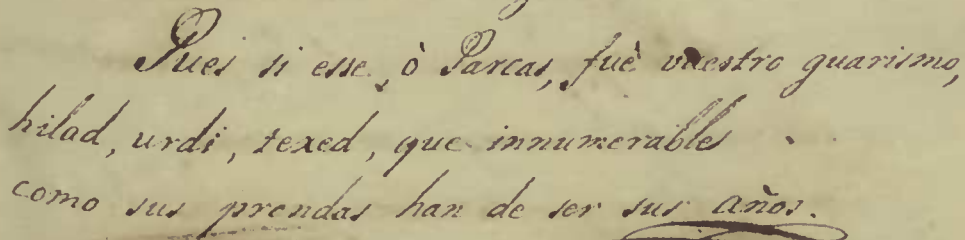 Pues si esse, ò Parcas, fuè vuestro guarismo,
hilad, urdi, texed, que innumerables
como sus prendas han de ser sus años.